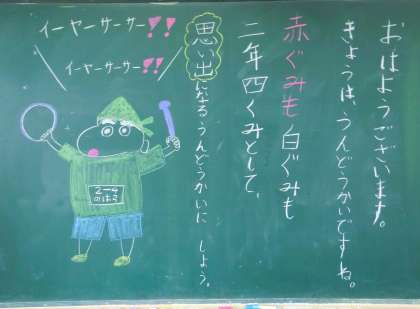 おはようございます。
きょうは、うんどうかいですね。
赤ぐみも白ぐみも
二年四くみとして、
思い出になる、うんどうかいに しよう。
イーヤーサーサー!!
イーヤーサーサー!!
2-4